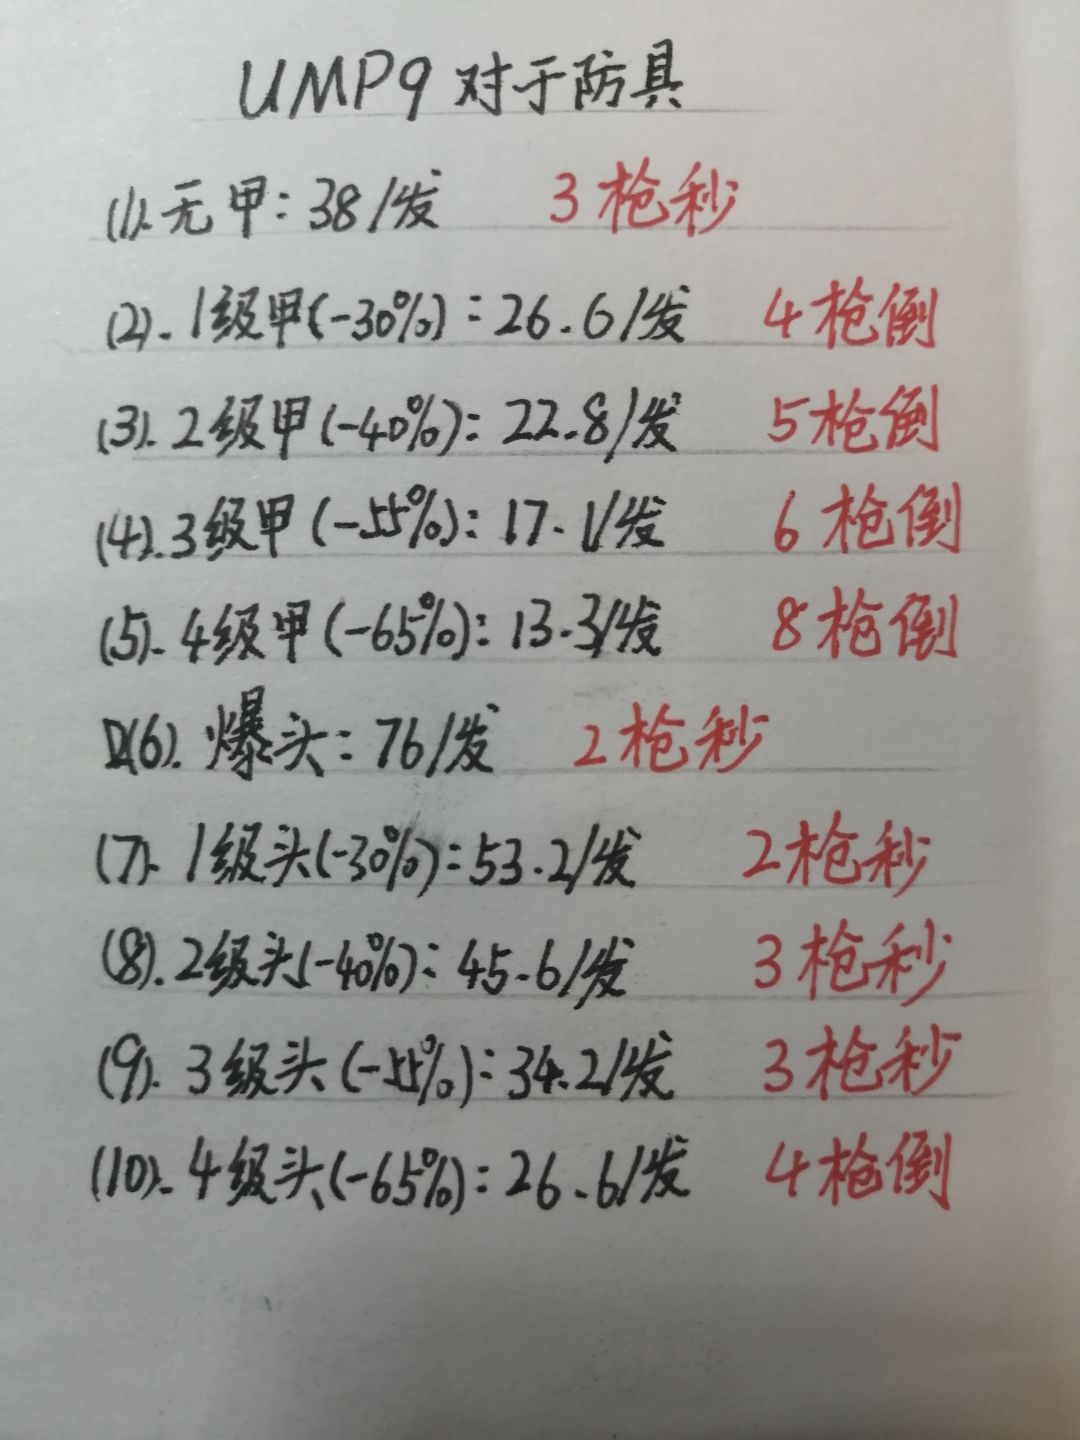 UMP9 对于防具
(1).无甲：38/发 3枪秒
(2).1级甲(-30%)：26.6/发 4枪倒
(3).2级甲(-40%)：22.8/发 5枪倒
(4).3级甲(-55%)：17.1/发 6枪倒
(5).4级甲(-65%)：13.3/发 8枪倒
(6).爆头：76/发 2枪秒
(7).1级头(-30%)：53.2/发 2枪秒
(8).2级头(-40%)：45.6/发 3枪秒
(9).3级头(-55%)：34.2/发 3枪秒
(10).4级头(-65%)：26.6/发 4枪倒